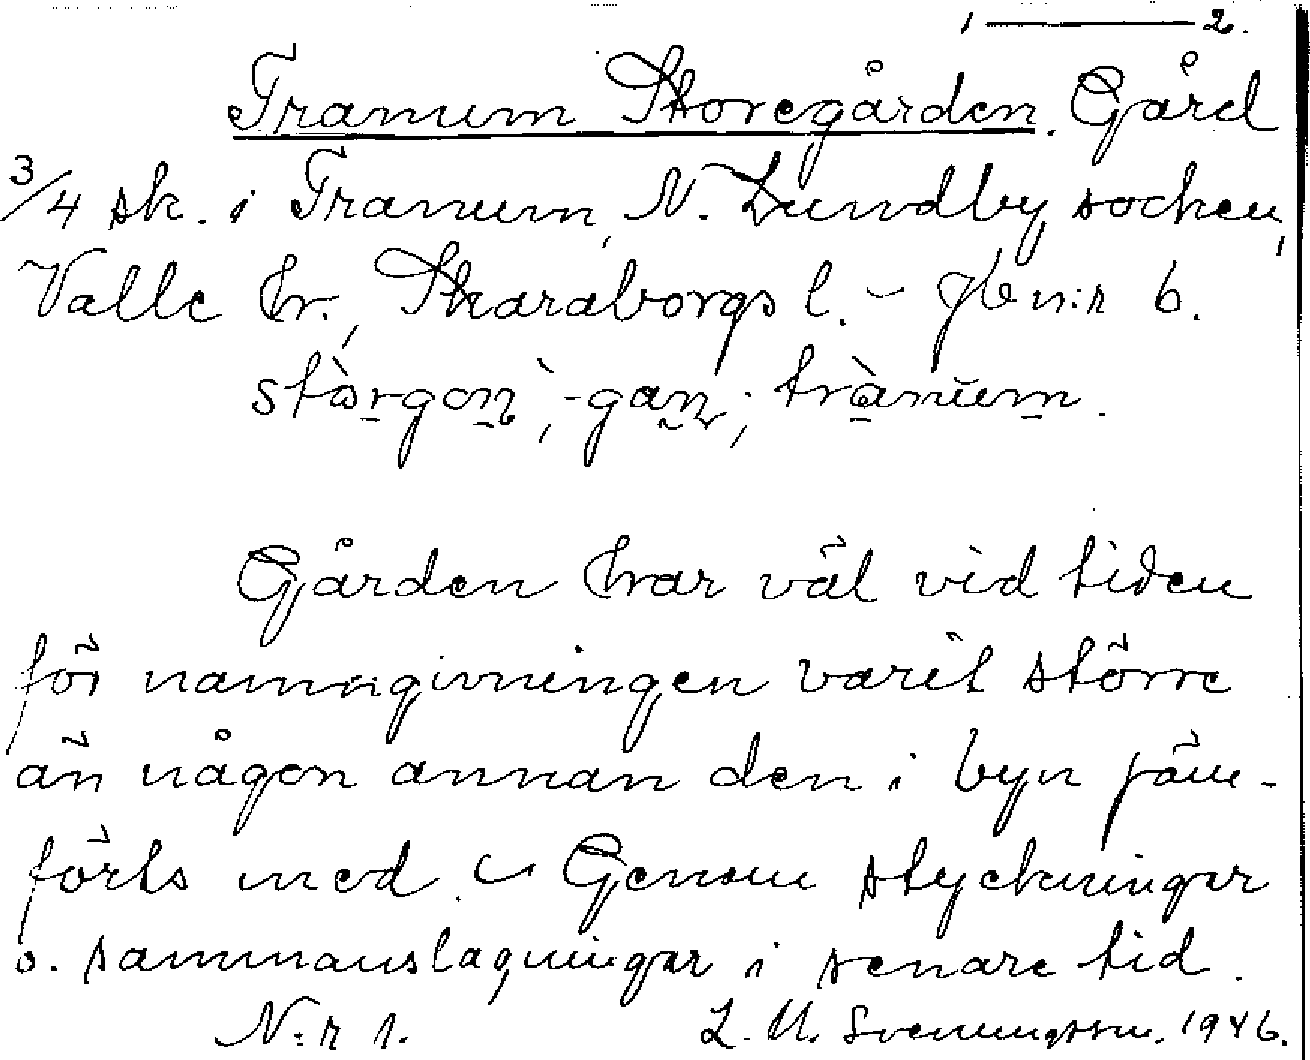 1 — 2.
Tranum Storegården. Gård
3/4 sk. i Tranum, N. Lundby socken,
Valle hr., Skaraborgs l. – Jbn:r 6.
stòrgon`, -gan; trànum.
Gården har väl vid tiden
för namngivningen varit större
än någon annan den i byn jäm-
förts med. – Genom styckningar
o. sammanslagningar i senare tid.
N:r 1. L. M. Svenungsson. 1946.